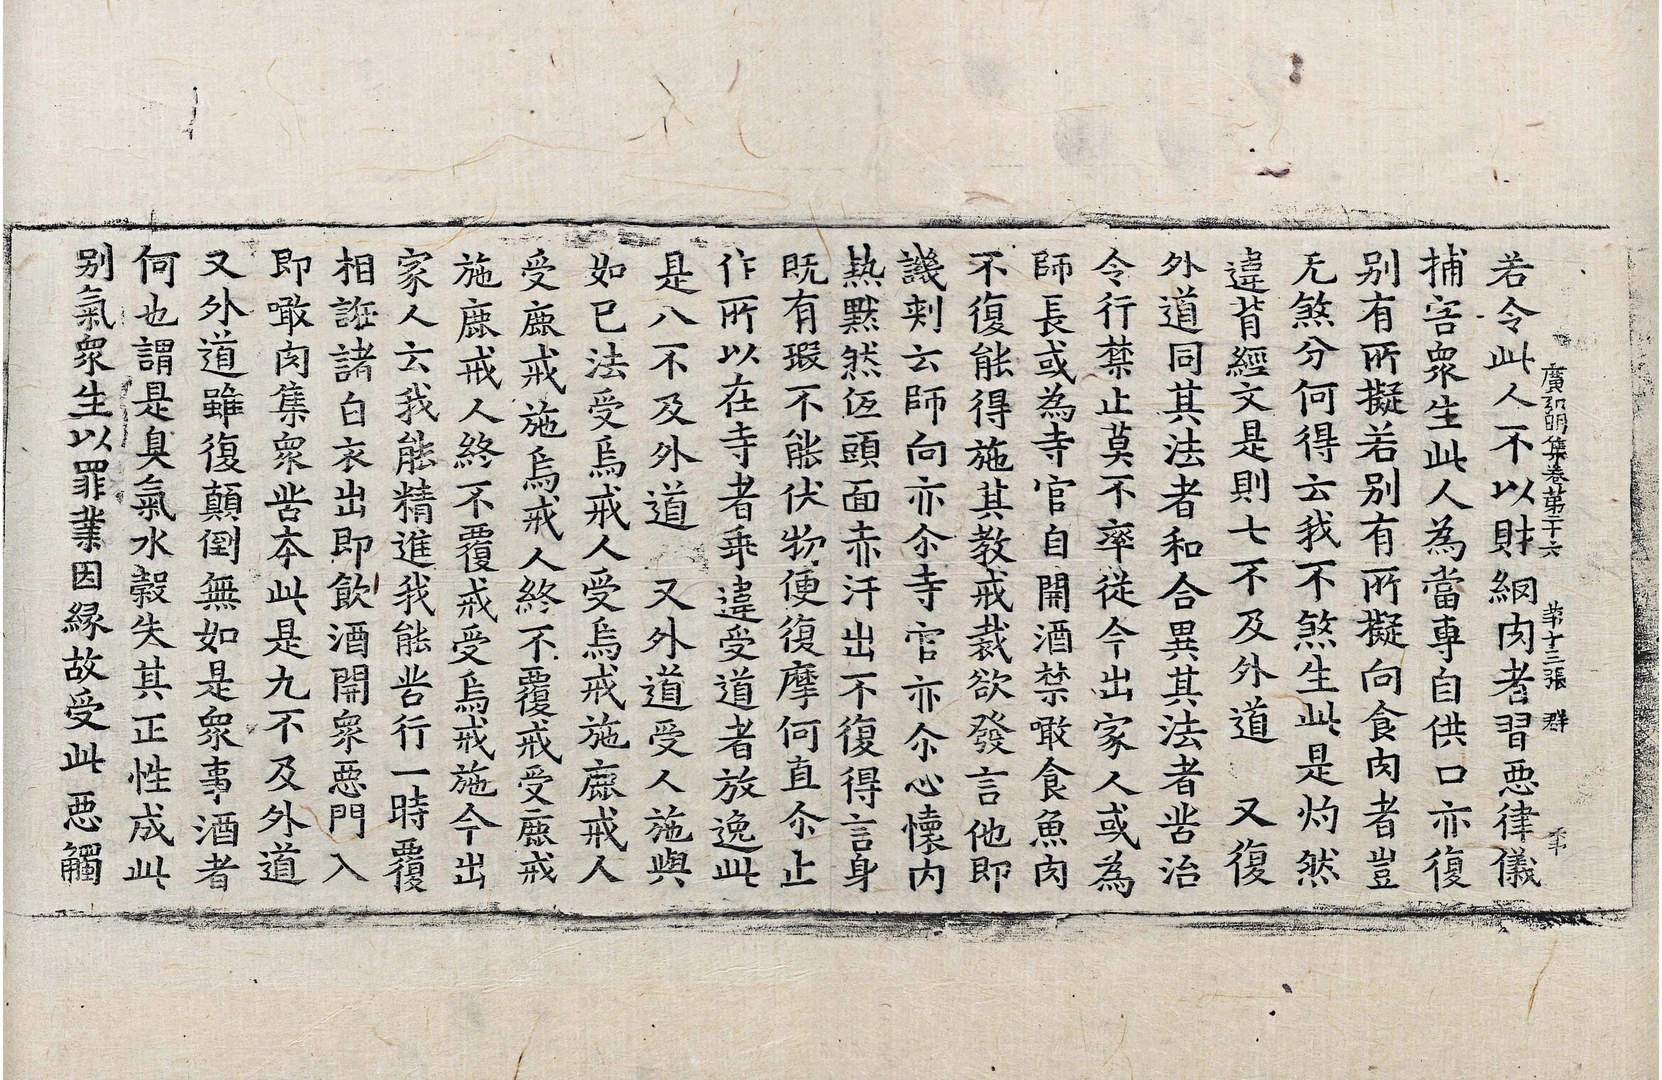 廣弘明集卷第二十六 第十三張 群
若令此人不以財網肉者習惡律儀
捕害眾生此人為當專自供口亦復
別有所擬若別有所擬向食肉者豈
无煞分何得云我不煞生此是灼然
違背經文是則七不及外道 又復
外道同其法者和合異其法者苦治
令行禁止莫不率從今出家人或為
師長或為寺官自開酒禁噉食魚肉
不復能得施其教戒裁欲發言他即
譏刺云師向亦尒寺官亦尒心懷內
熱默然低頭面赤汗出不復得言身
既有瑕不能伏物便復摩何直尒止
作所以在寺者乖違受道者放逸此
是八不及外道 又外道受人施與
如已法受烏戒人受烏戒施鹿戒人
受鹿戒施烏戒人終不覆戒受鹿戒
施鹿戒人終不覆戒受烏戒施今出
家人云我能精進我能苦行一時覆
相誑諸白衣出即飲酒開眾惡門入
即噉肉集眾苦本此是九不及外道
又外道雖復顛倒無如是眾事酒者
何也謂是臭氣水穀失其正性成此
別氣眾生以罪業因緣故受此惡觸